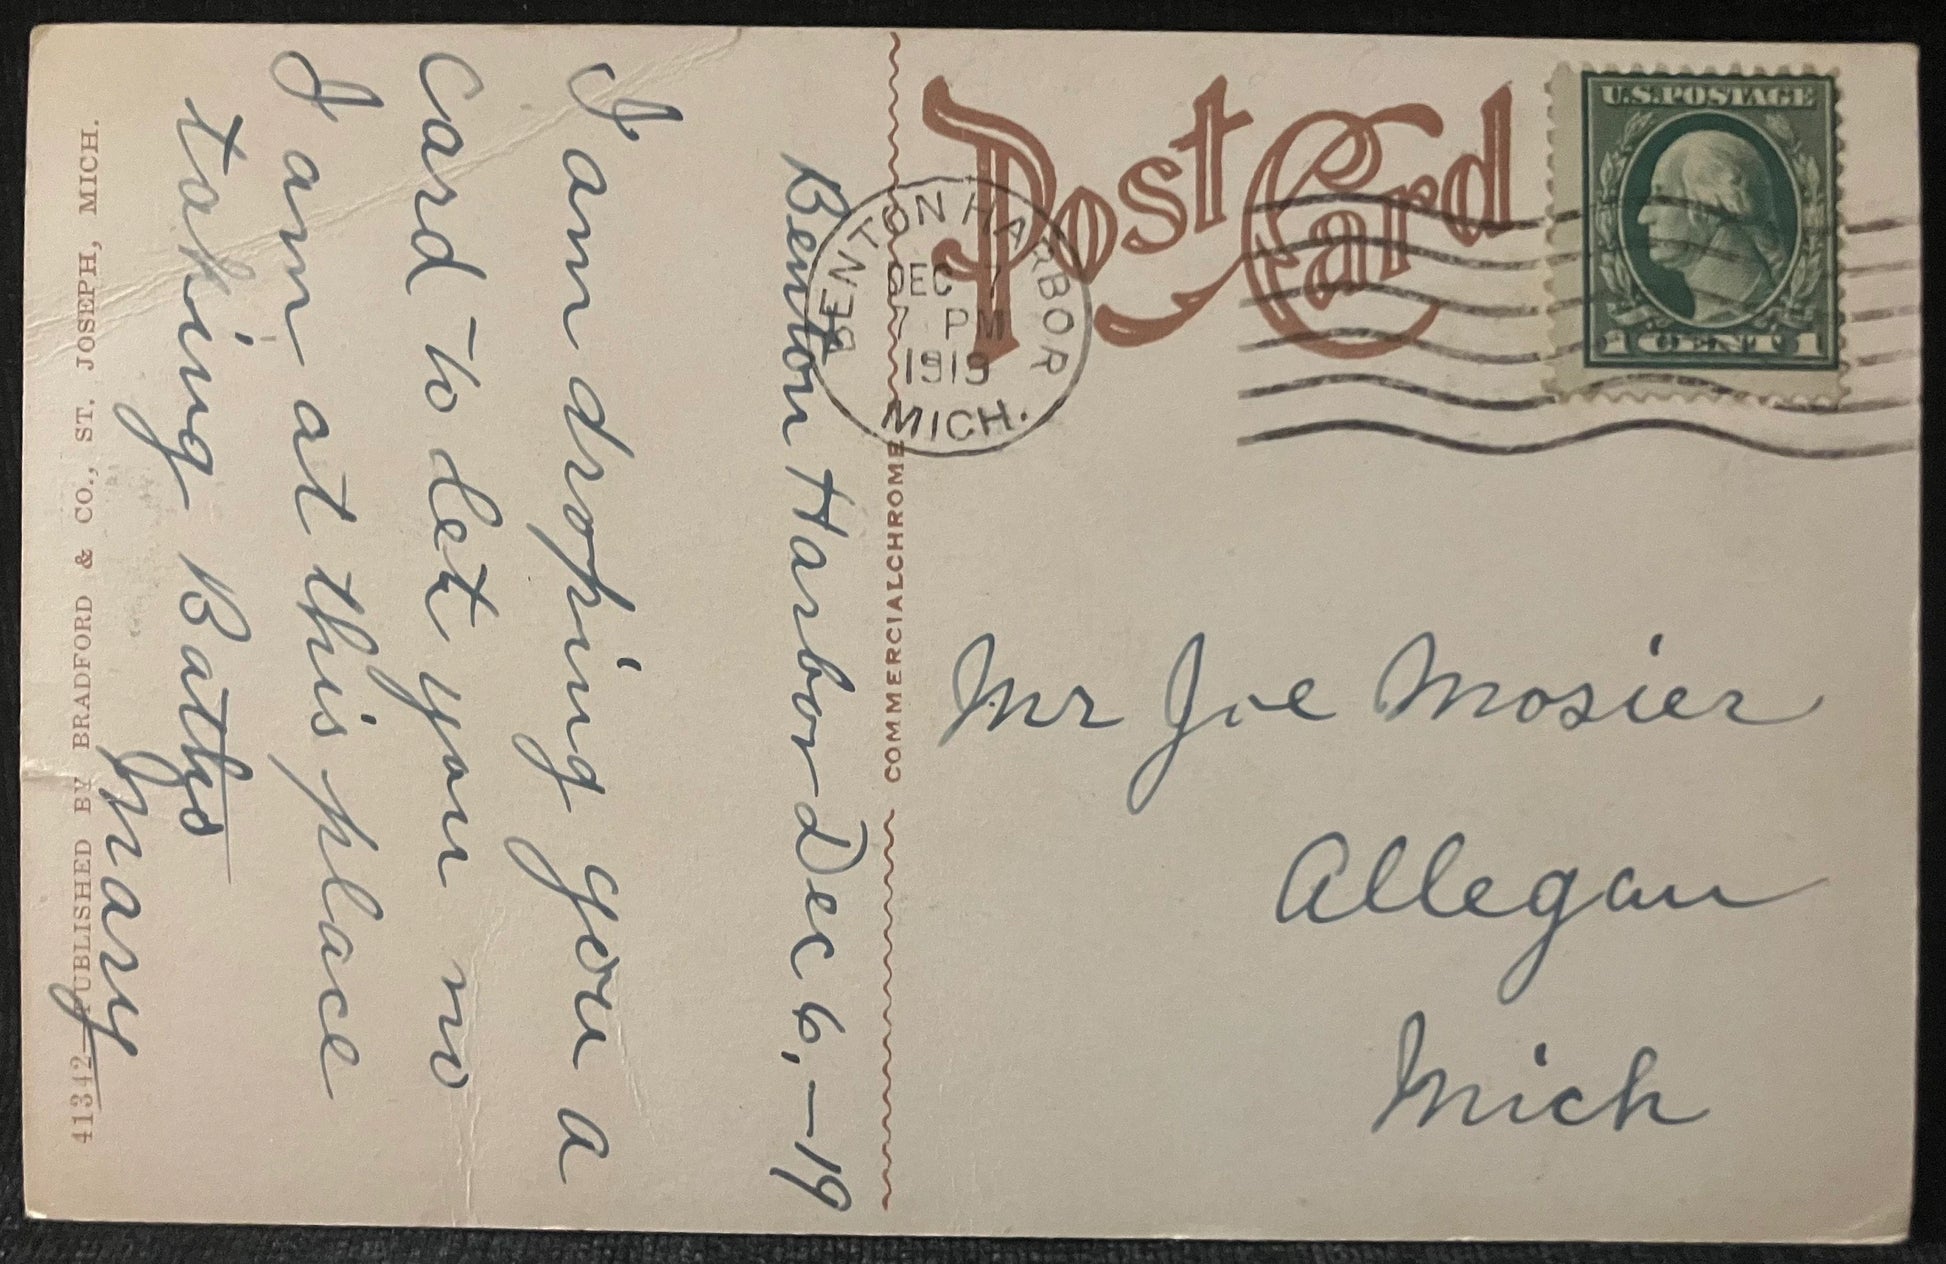 Post Card
U.S.POSTAGE
1 CENT 1
BENTON HARBOR
DEC 7
7 PM
1919
MICH.
Benton Harbor Dec 6,-19
I am droping you a
Card to let you no
I am at this place
taking Baths
Mary
Mr Joe Mosier
Allegan
Mich
COMMERCIALCHROME
41342—PUBLISHED BY BRADFORD & CO., ST. JOSEPH, MICH.